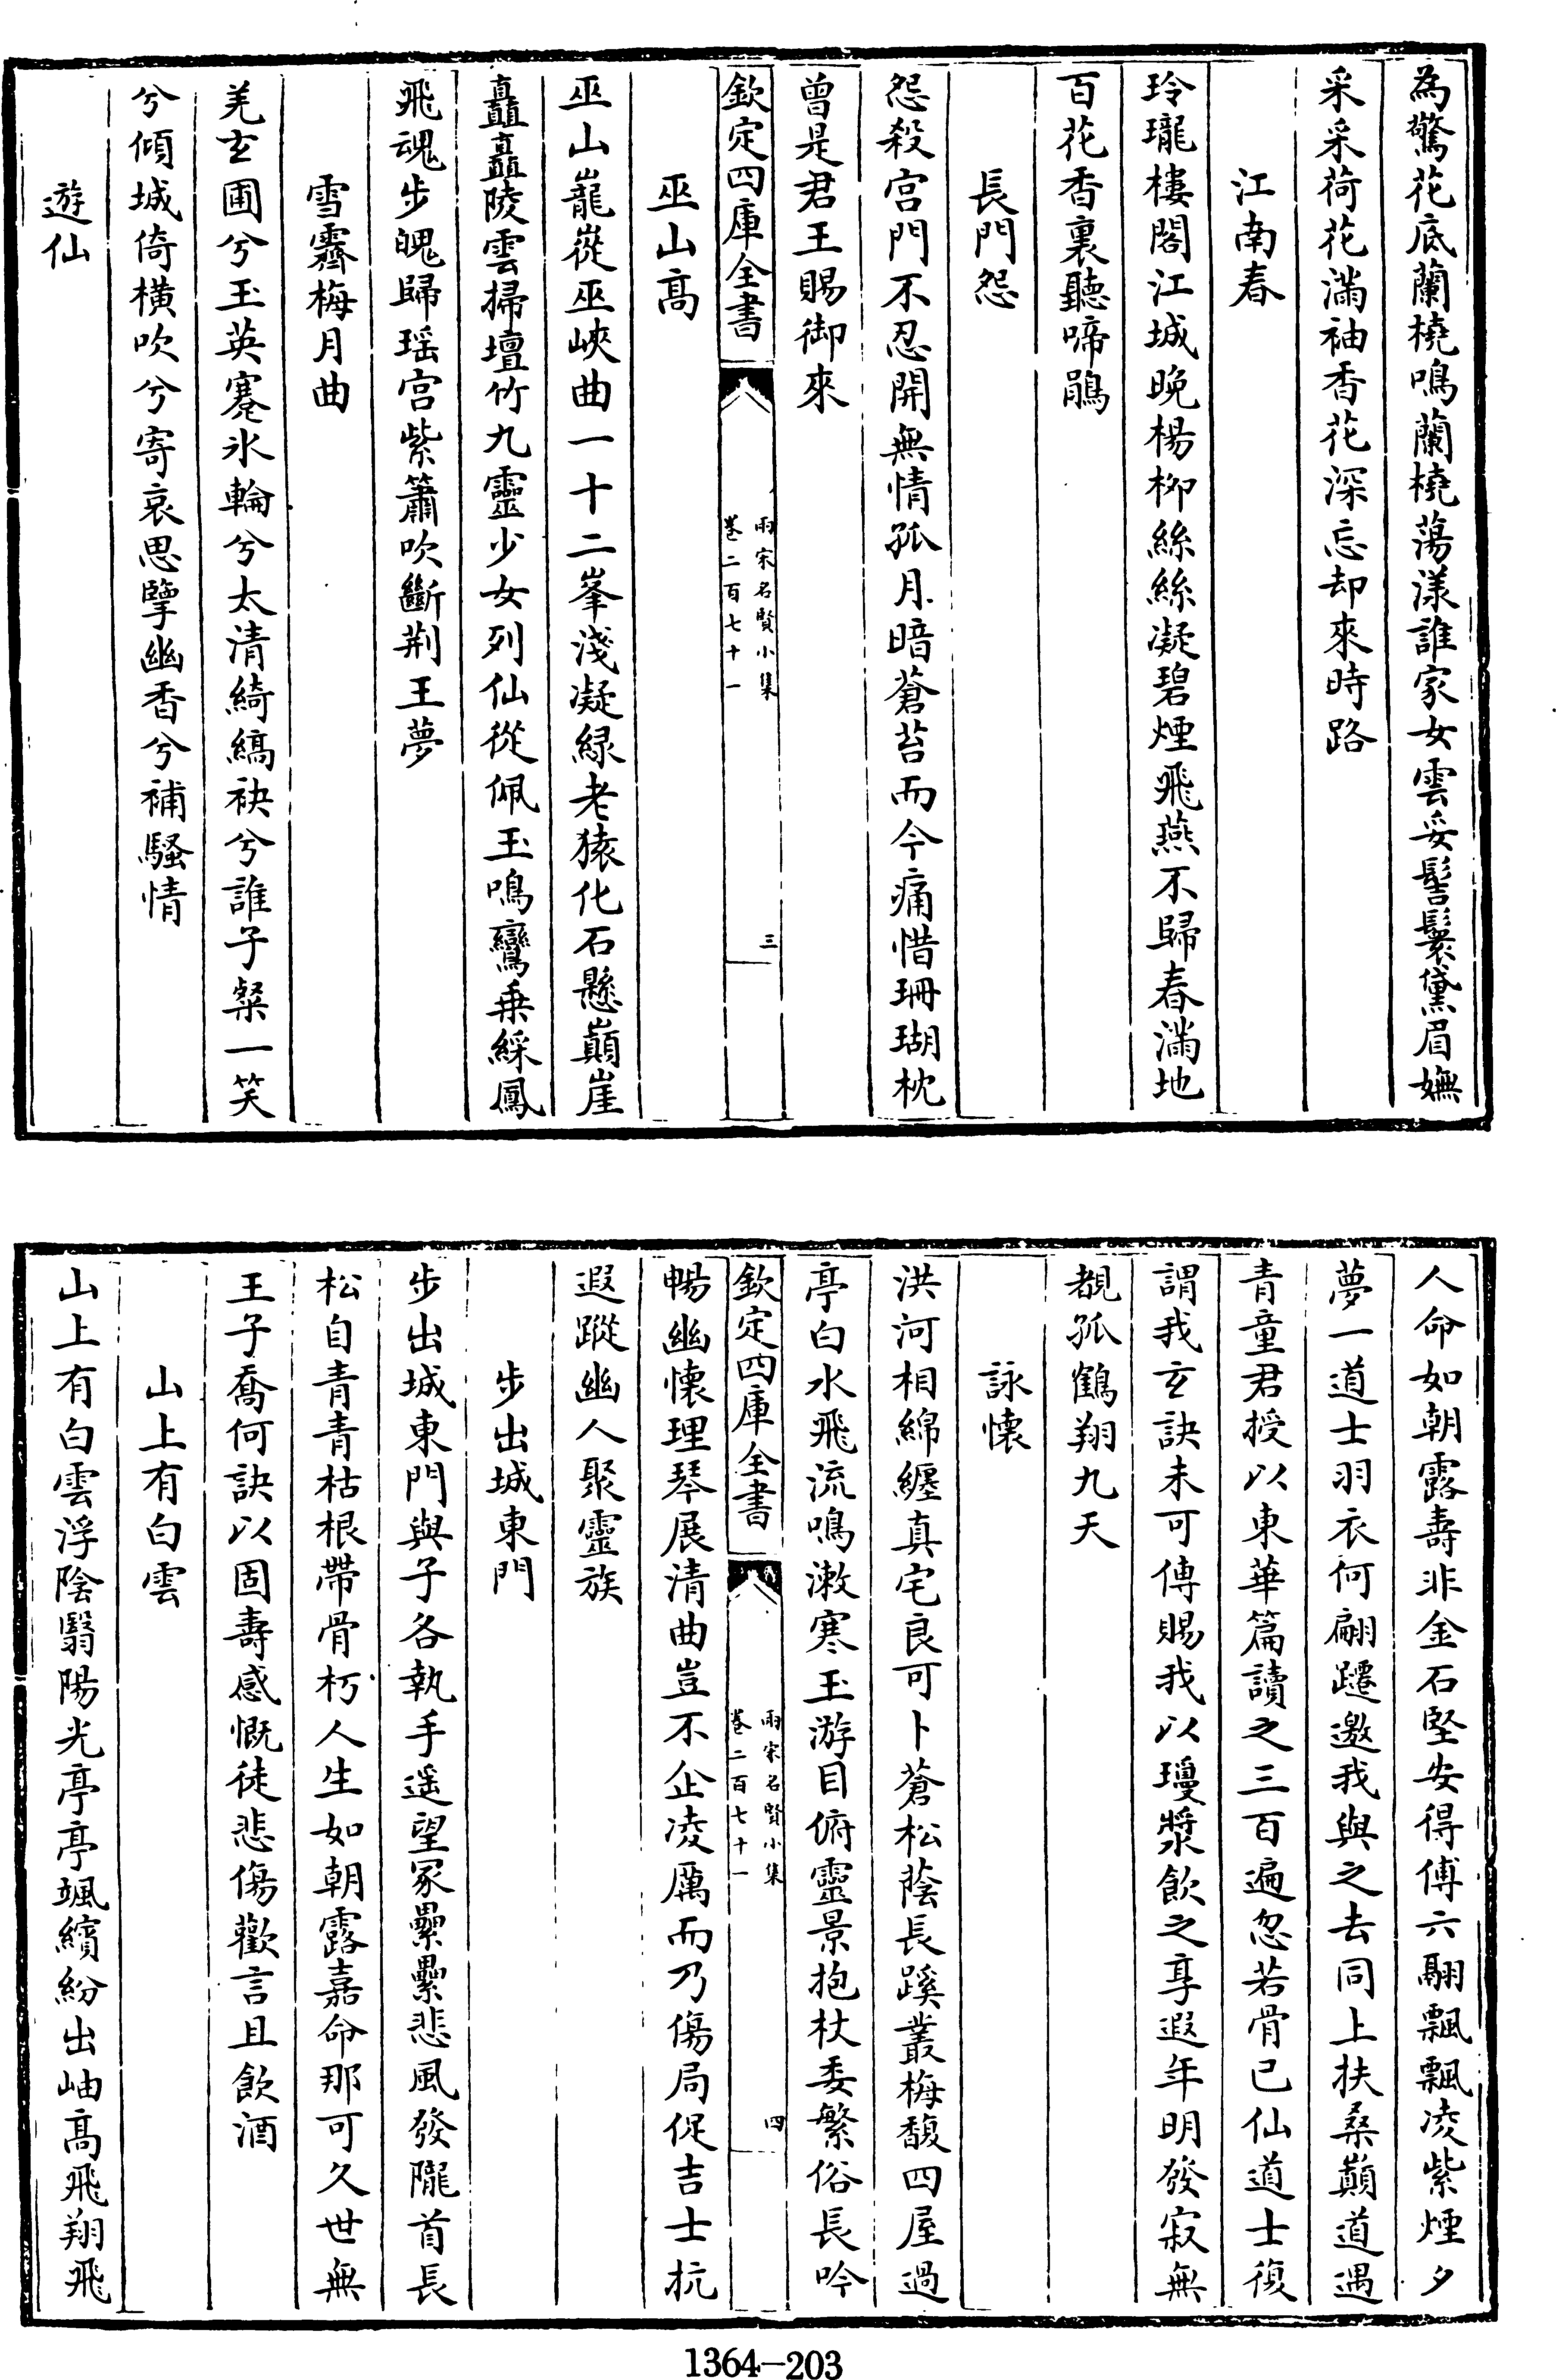 為驚花底蘭橈鳴蘭橈蕩漾誰家女雲妥髻鬟黛眉嫵
采采荷花滿袖香花深忘却來時路
江南春
玲瓏樓閣江城晚楊柳絲絲凝碧煙飛燕不歸春滿地
百花香裏聽啼鵑
長門怨
怨殺宮門不忍開無情孤月暗蒼苔而今痛惜珊瑚枕
曾是君王賜御來
欽定四庫全書
兩宋名賢小集
卷二百七十一
三
巫山高
巫山巃嵸巫峽曲一十二峯淺凝緑老猿化石懸巔崖
矗矗陵雲掃壇竹九靈少女列仙從佩玉鳴鸞乗綵鳳
飛魂步魄歸瑶宮紫簫吹斷荆王夢
雪霽梅月曲
羌玄圃兮玉英蹇氷輪兮太清綺縞袂兮誰子粲一笑
兮傾城倚橫吹兮寄哀思擥幽香兮補騷情
遊仙
人命如朝露壽非金石堅安得傅六翮飄飄凌紫煙夕
夢一道士羽衣何翩躚邀我與之去同上扶桑巔道遇
青童君授以東華篇讀之三百遍忽若骨已仙道士復
謂我玄訣未可傳賜我以瓊漿飲之享遐年明發寂無
覩孤鶴翔九天
詠懷
洪河相綿纏真宅良可卜蒼松蔭長蹊叢梅馥四屋過
亭白水飛流鳴漱寒玉游目俯靈景抱杖委繁俗長吟
欽定四庫全書
兩宋名賢小集
卷二百七十一
四
暢幽懷理琴展清曲豈不企凌厲而乃傷局促吉士抗
遐蹤幽人聚靈族
步出城東門
步出城東門與子各執手遥望冢纍纍悲風發隴首長
松自青青枯根帶骨朽人生如朝露嘉命那可久世無
王子喬何訣以固壽感慨徒悲傷歡言且飲酒
山上有白雲
山上有白雲浮陰翳陽光亭亭颯繽紛出岫髙飛翔飛
1364-203